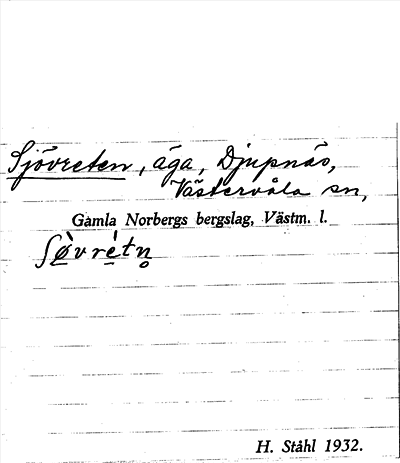 Sjövreten, äga, Djupnäs,
Västervåla sn,
Gamla Norbergs bergslag, Västm. l.
ʃø̠̀vre̠̍tn̥
H. Ståhl 1932.